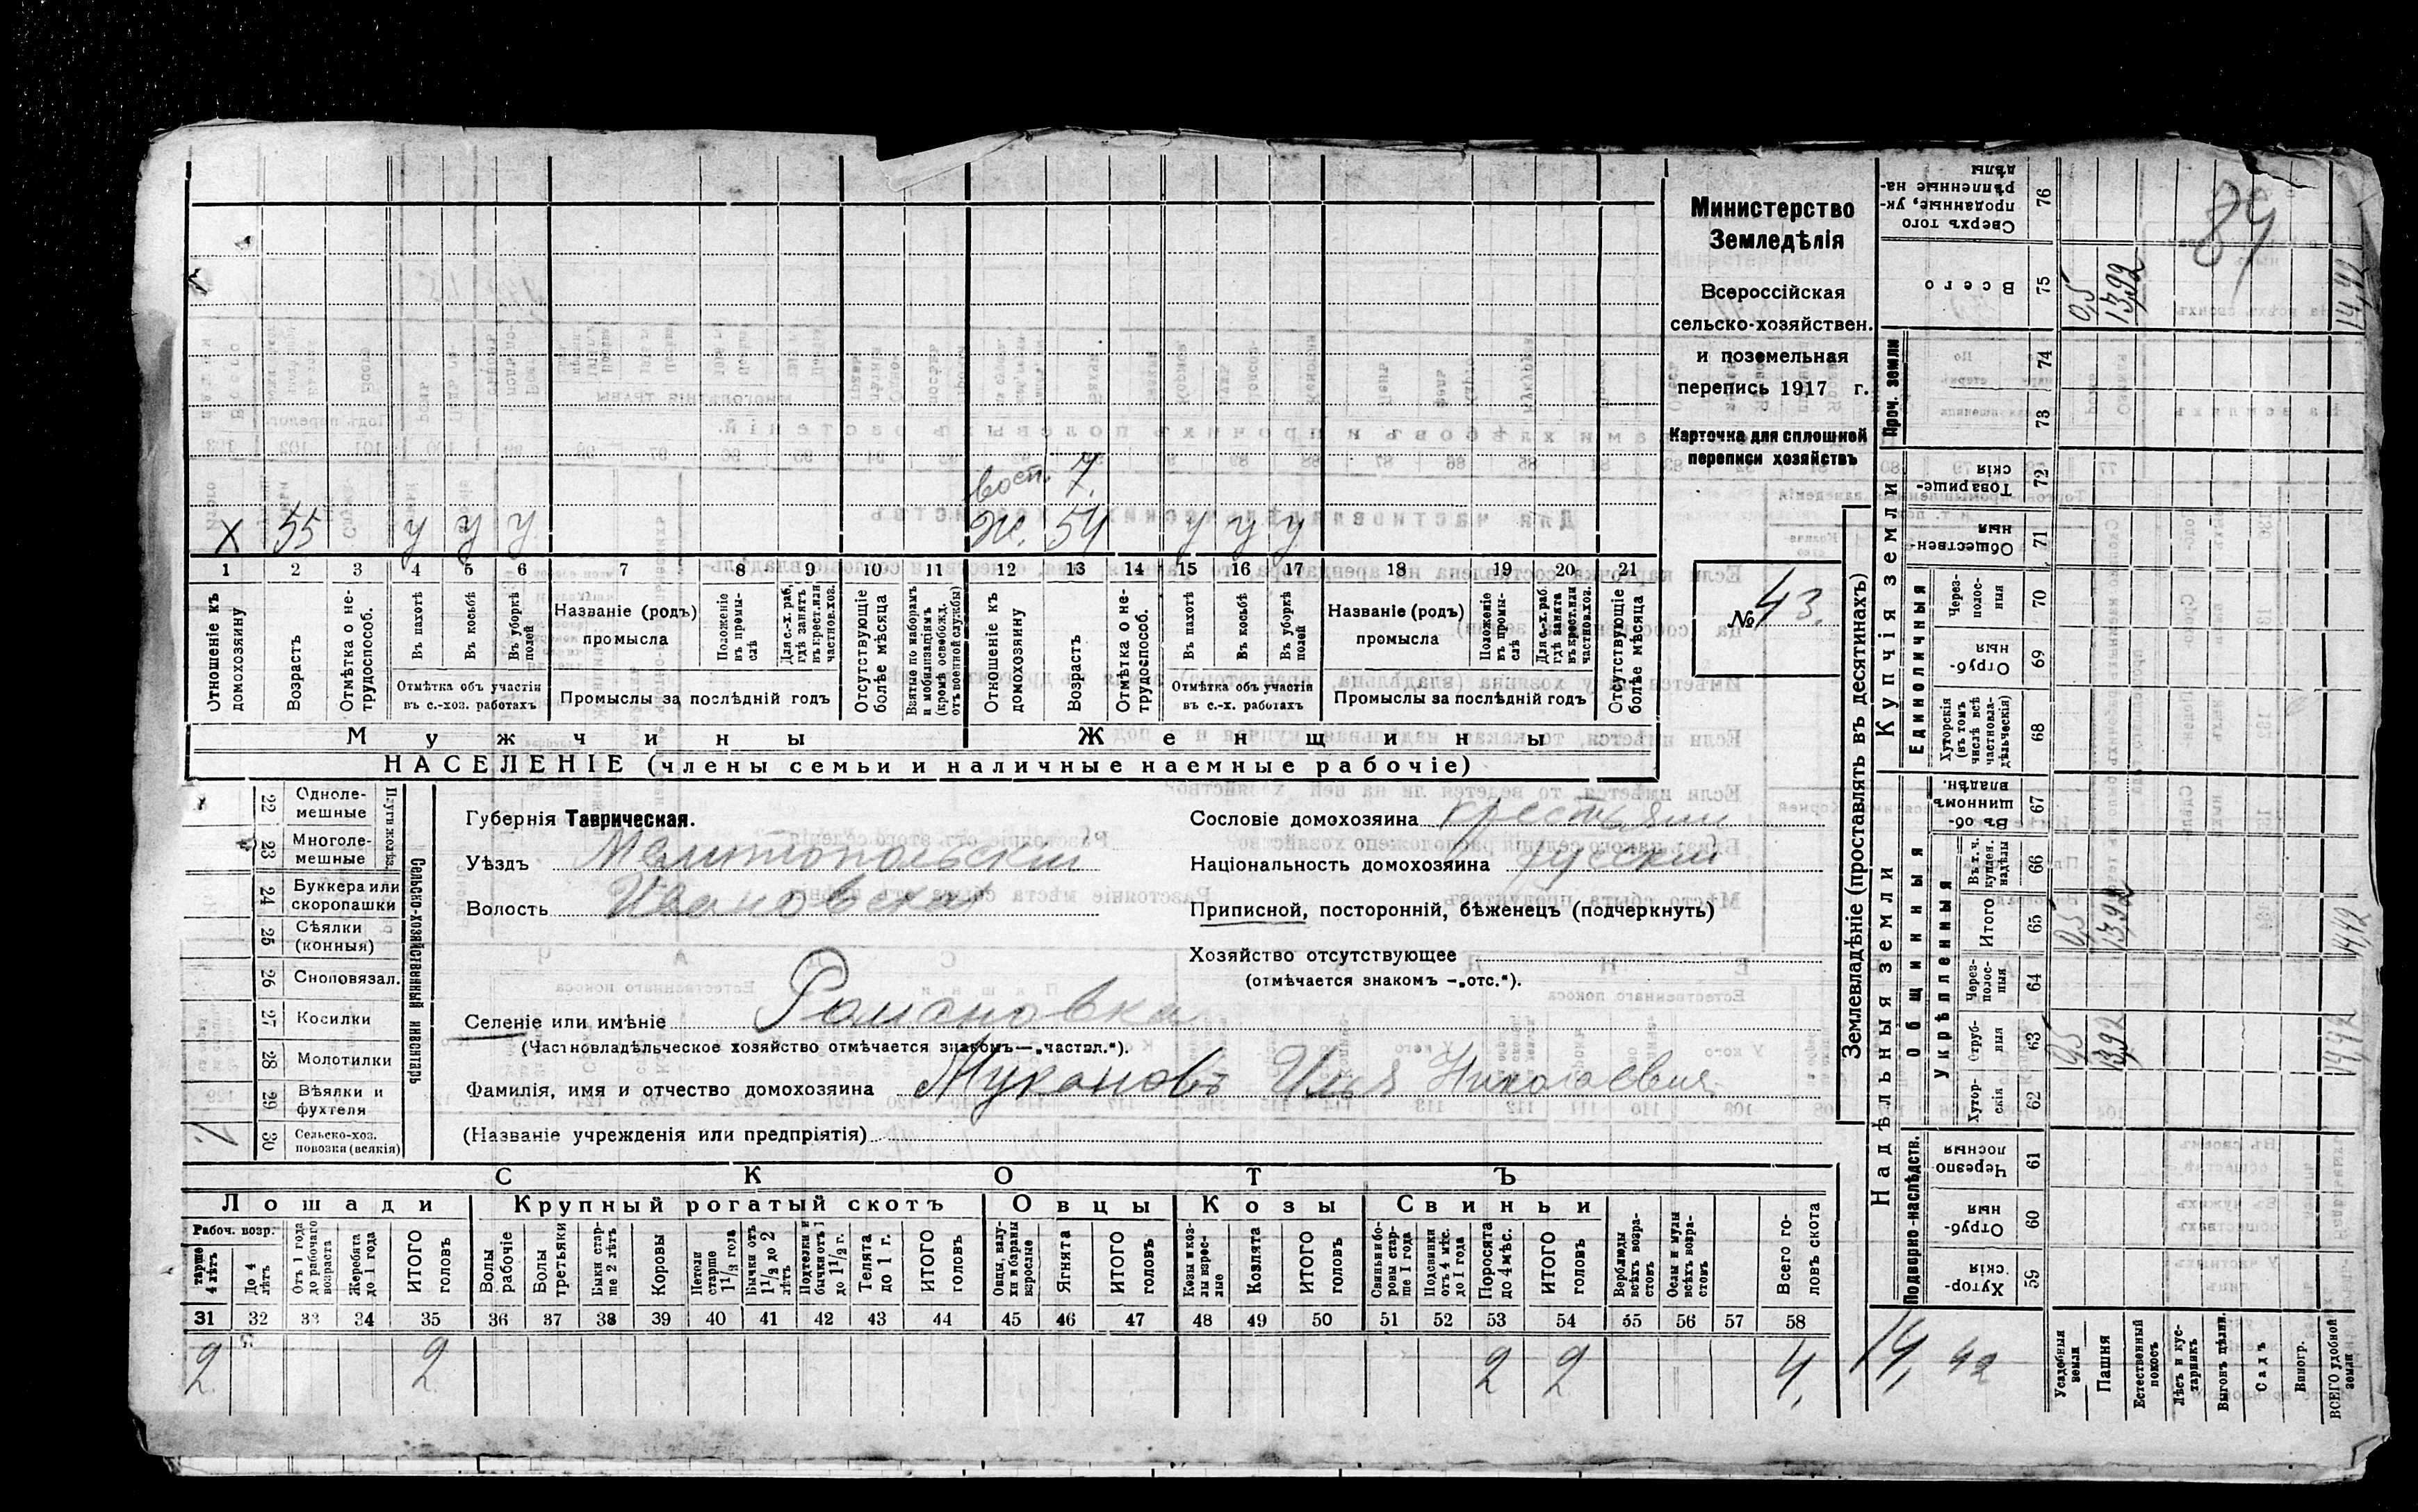 84
Министерство
Земледѣлія
Всероссійская
сельско-хозяйствен.
и поземельная
перепись 1917 г.
Карточка для сплошной
переписи хозяйствъ
№ 43.
вост. 7.
х 55 у у у ж. 54 у у у
1 2 3 4 5 6 7 8 9 10 11 12 13 14 15 16 17 18 19 20 21
Отношеніе къ домохозяину
Возрастъ
Отмѣтка о не-трудоспособ.
Въ пахотѣ
Въ косьбѣ
Въ уборкѣ полей
Отмѣтка объ участіи
въ с.-хоз. работахъ
Названіе (родъ)
промысла
Положеніе въ промы-слѣ
Для с.-х. раб, гдѣ занятъ въ крест. или частнов. хоз.
Промыслы за послѣдній годъ
Отсутствующіе болѣе мѣсяца
Взятые по наборамъ и мобилизаціямъ (кромѣ освобожд. отъ военной службы)
Отношеніе къ домохозяину
Возрастъ
Отмѣтка о не-трудоспособ.
Въ пахотѣ
Въ косьбѣ
Въ уборкѣ полей
Отмѣтка объ участіи
въ с.-х. работахъ
Названіе (родъ)
промысла
Положеніе въ промы-слѣ
Для с.-х. раб. гдѣ занята въ крест. или частнов. хоз.
Промыслы за послѣдній годъ
Отсутствующіе болѣе мѣсяца
Мужчины Женщины
НАСЕЛЕНІЕ (члены семьи и наличные наемные рабочіе)
Сельско-хозяйственный инвентарь
22 Одноле-мешные
23 Многоле-мешные
24 Буккера или скоропашки
25 Сѣялки (конныя)
26 Сноповязал.
27 Косилки
28 Молотилки
29 Вѣялки и фухтеля
30 Сельско-хоз. повозки (всякія) 1
Губернія Таврическая.
Уѣздъ Мелитопольскій
Волость Ивановская
Селеніе или имѣніе Романовка
(Частновладѣльческое хозяйство отмѣчается знакомъ—„частвл.“).
Фамилія, имя и отчество домохозяина Мукановъ Илья Николаевич
(Названіе учрежденія или предпріятія)
Сословіе домохозяина крестьянин
Національность домохозяина русский
Приписной, посторонній, бѣженецъ (подчеркнуть)
Хозяйство отсутствующее
(отмѣчается знакомъ —„отс.“).
СКОТЪ
Лошади Крупный рогатый скотъ Овцы Козы Свиньи
Рабоч. возр.
старше 4 лѣтъ
До 4 лѣтъ
Отъ 1 года до рабочаго возраста
Жеребята до 1 года
ИТОГО головъ
Волы рабочіе
Волы третьяки
Быки стар-ше 2 лѣтъ
Коровы
Нетели старше 1 1/2 года
Бычки отъ 1 1/2 до 2 лѣтъ
Подтелки и бычки отъ 1 до 1 1/2 г.
Телята до 1 г.
ИТОГО головъ
Овцы, валу-хи и бараны взрослые
Ягнята
ИТОГО головъ
Козы и коз-лы взрос-лые
Козлята
ИТОГО головъ
Свиньи и бо-ровы стар-ше 1 года
Подсвинки отъ 4 мѣс. до 1 года
Поросята до 4 мѣс.
ИТОГО головъ
Верблюды всѣхъ возра-стовъ
Ослы и мулы всѣхъ возра-стовъ
Всего го-ловъ скота
31 32 33 34 35 36 37 38 39 40 41 42 43 44 45 46 47 48 49 50 51 52 53 54 55 56 57 58
2 2 2 2 4.
Землевладѣніе (проставлять въ десятинахъ)
Надѣльныя земли
Купчія земли
Проч. земли
Подворно-наслѣдств.
Общинныя
Укрѣпленныя
Единоличныя
59 Хутор-скія
60 Отруб-ныя
61 Черезпо-лосныя
62 Хутор-скія
63 Отруб-ныя 0,5 13,92 14,42
64 Через-полос-ныя
65 Итого 0,5 13,92 14,42
66 Въ т. ч. куплен. надѣлы
67 Въ об-щинномъ владѣн.
68 Хуторскія (въ томъ числѣ всѣ частновла-дѣльческія)
69 Отруб-ныя
70 Через-полос-ныя
71 Обществен-ныя
72 Товарище-скія
73
74
75 Всего 0,5 13,92 14,42
76 Сверхъ того проданные, ук-рѣпленные на-дѣлы
14,42
Усадебныя земли
Пашня
Естественный покосъ
Лѣсъ и кус-тарникъ
Выгонъ цѣлин.
Садъ
Виногр.
ВСЕГО удобной земли